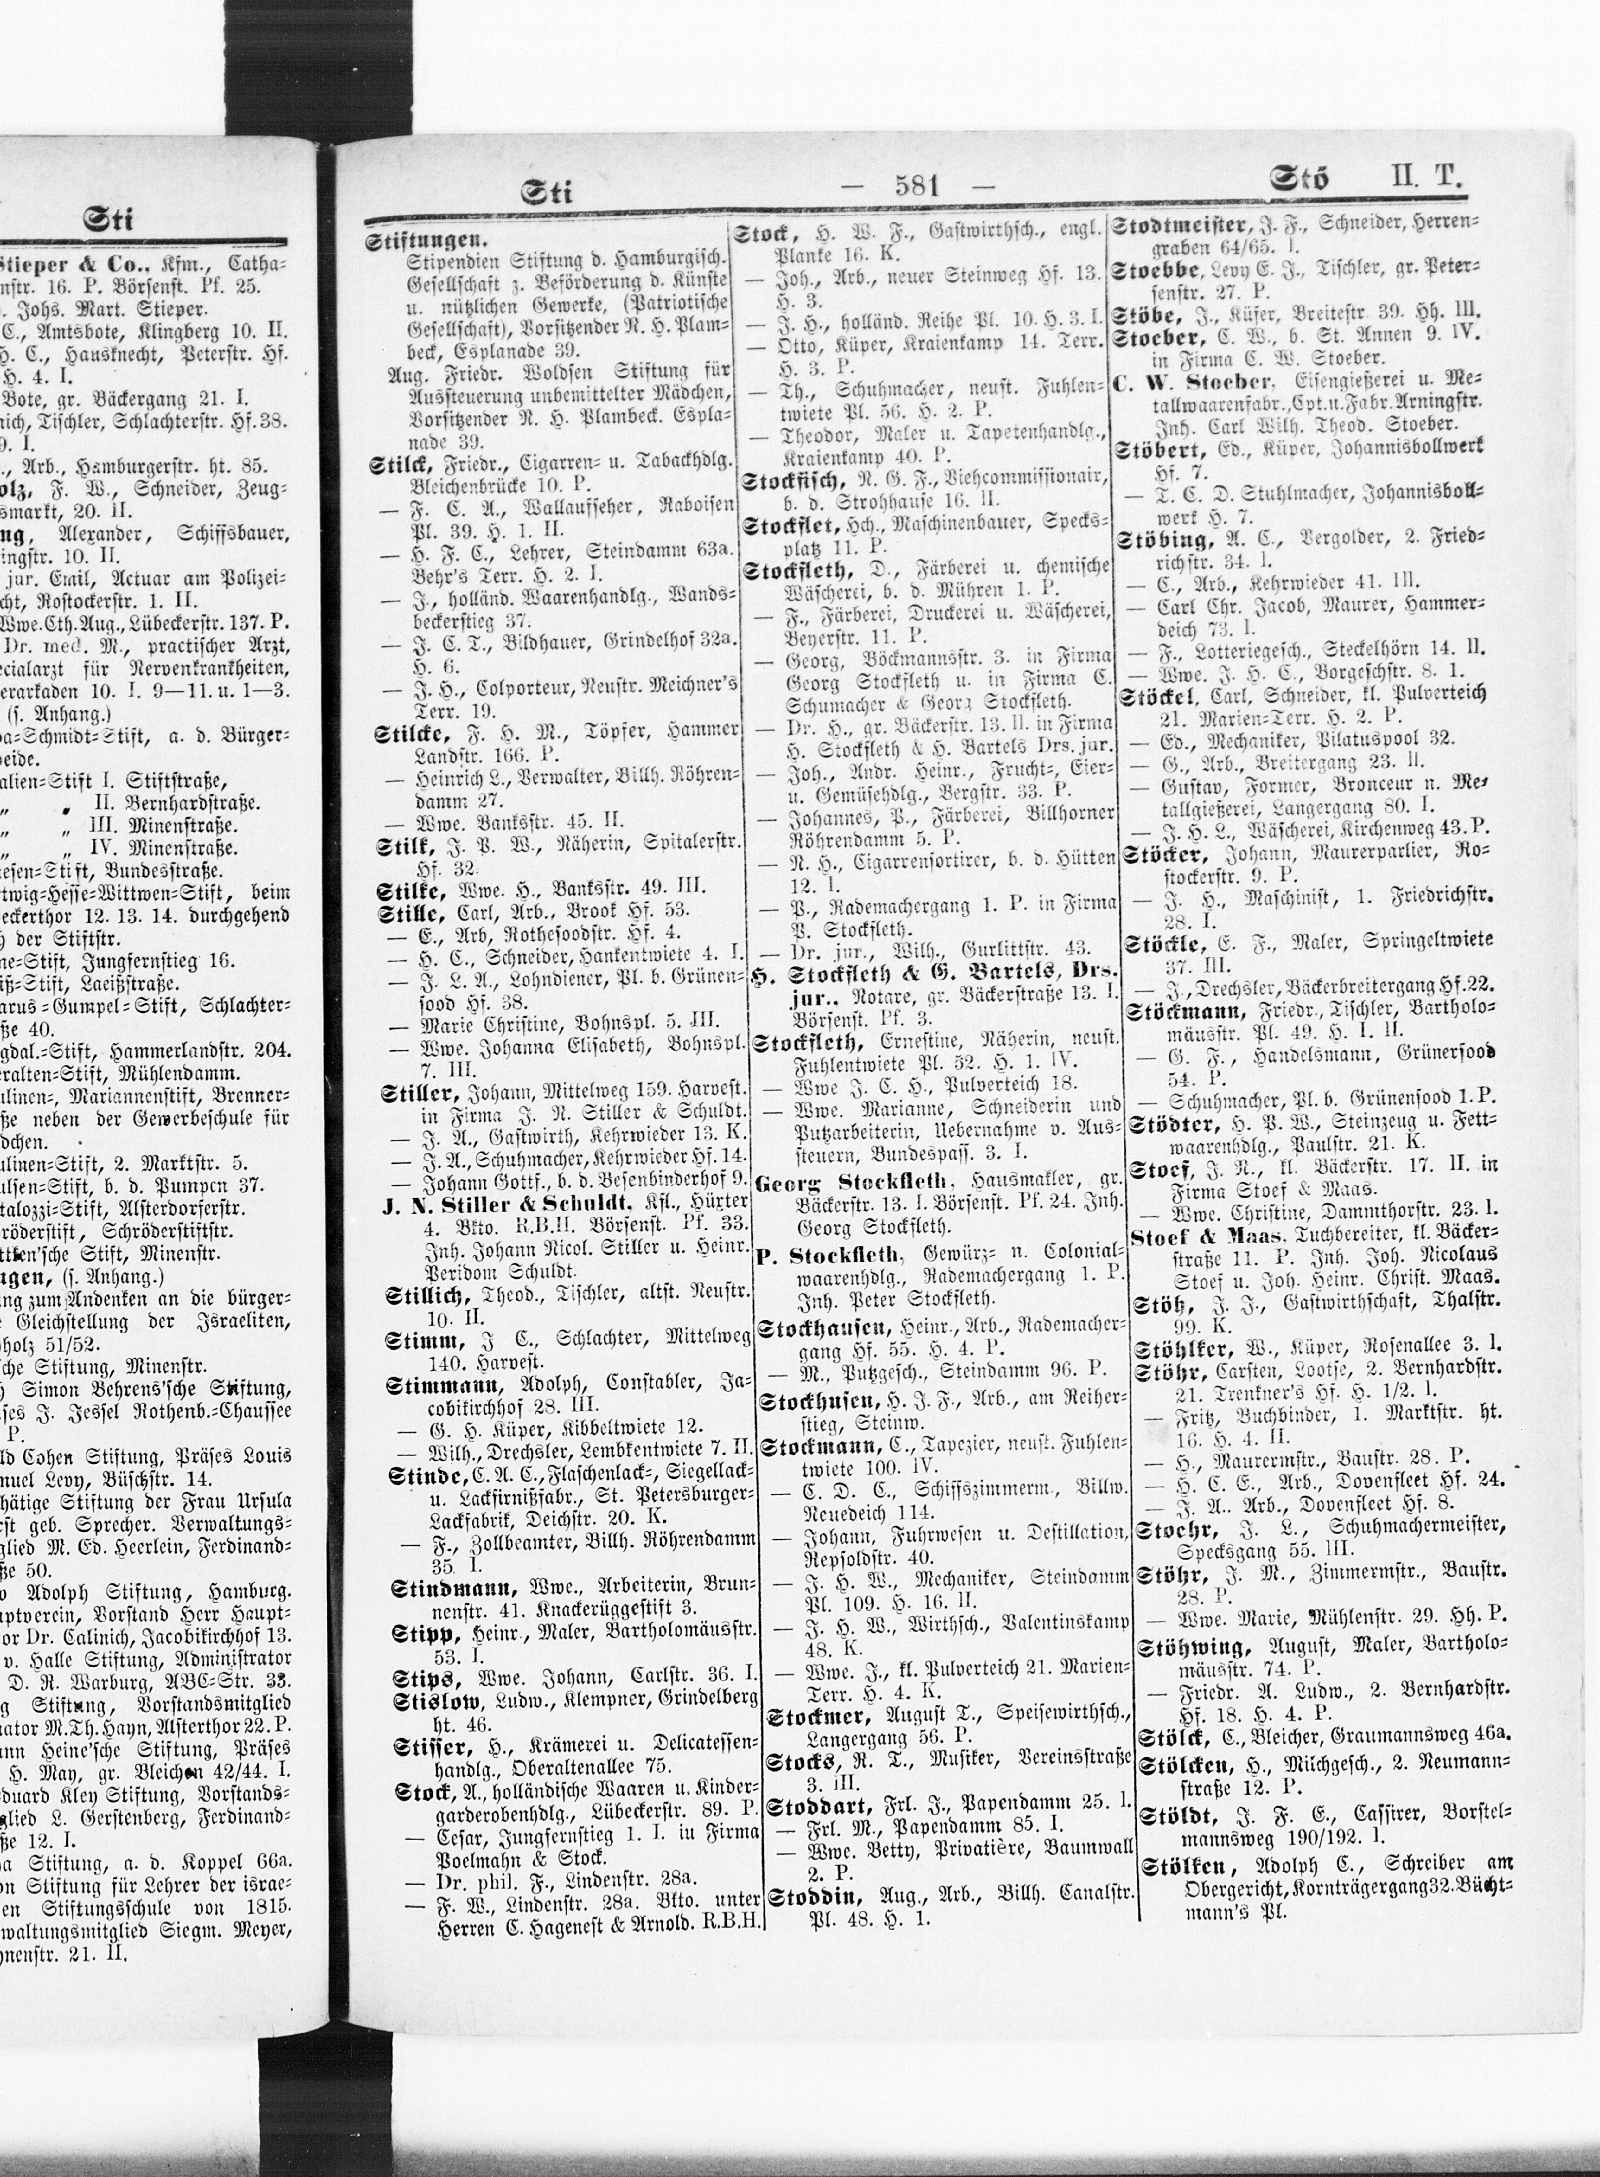 Sti
Stieper & Co., Kfm., Catha-
nstr. 16. P. Börsenst. Pf. 25.
Johs. Mart. Stieper.
C., Amtsbote, Klingberg 10. II.
H. C., Hausknecht, Peterstr. Hf.
H. 4. I.
Bote, gr. Bäckergang 21. I.
nich, Tischler, Schlachterstr. Hf. 38.
9. I.
., Arb., Hamburgerstr. ht. 85.
olz, F. W., Schneider, Zeug-
smarkt, 20. II.
ng, Alexander, Schiffsbauer,
ingstr. 10. II.
jur. Emil, Actuar am Polizei-
cht, Rostockerstr. 1. II.
Wwe. Cth. Aug., Lübeckerstr. 137. P.
Dr. med. M., practischer Arzt,
ecialarzt für Nervenkrankheiten,
erarkaden 10. I. 9—11. u. 1—3.
(s. Anhang.)
pa-Schmidt-Stift, a. d. Bürger-
veide.
alien-Stift I. Stiftstraße,
„ „ II. Bernhardstraße.
„ „ III. Minenstraße.
„ „ IV. Minenstraße.
esen-Stift, Bundesstraße.
rtwig-Hesse-Wittwen-Stift, beim
eckerthor 12. 13. 14. durchgehend
h der Stiftstr.
ne-Stift, Jungfernstieg 16.
iß-Stift, Laeißstraße.
arus-Gumpel-Stift, Schlachter-
ße 40.
gdal.-Stift, Hammerlandstr. 204.
eralten-Stift, Mühlendamm.
ulinen-, Mariannenstift, Brenner-
ße neben der Gewerbeschule für
dchen.
ulinen-Stift, 2. Marktstr. 5.
ulsen-Stift, b. d. Pumpen 37.
talozzi-Stift, Alsterdorferstr.
röderstift, Schröderstiftstr.
ttken'sche Stift, Minenstr.
ngen, (s. Anhang.)
ng zum Andenken an die bürger-
e Gleichstellung der Israeliten,
holz 51/52.
che Stiftung, Minenstr.
h Simon Behrens'sche Stiftung,
ses J. Jessel Rothenb.-Chaussee
P.
ld Cohen Stiftung, Präses Louis
nuel Levy, Büschstr. 14.
hätige Stiftung der Frau Ursula
rst geb. Sprecher. Verwaltungs-
glied M. Ed. Heerlein, Ferdinand-
ße 50.
v Adolph Stiftung, Hamburg.
uptverein, Vorstand Herr Haupt-
or Dr. Calinich, Jacobikirchhof 13.
v. Halle Stiftung, Administrator
D. R. Warburg, ABC-Str. 33.
g Stiftung, Vorstandsmitglied
nator M. Th. Hayn, Alsterthor 22. P.
nn Heine'sche Stiftung, Präses
H. May, gr. Bleichen 42/44. I.
duard Kley Stiftung, Vorstands-
glied L. Gerstenberg, Ferdinand-
ße 12. I.
a Stiftung, a. d. Koppel 66a.
on Stiftung für Lehrer der israe-
en Stiftungsschule von 1815.
waltungsmitglied Siegm. Meyer,
nenstr. 21. II.
Sti — 581 — Stö II. T.
Stiftungen.
Stipendien Stiftung d. Hamburgisch.
Gesellschaft z. Beförderung d. Künste
u. nützlichen Gewerke, (Patriotische
Gesellschaft), Vorsitzender N. H. Plam-
beck, Esplanade 39.
Aug. Friedr. Woldsen Stiftung für
Aussteuerung unbemittelter Mädchen,
Vorsitzender N. H. Plambeck. Espla-
nade 39.
Stilck, Friedr., Cigarren- u. Tabackhdlg.
Bleichenbrücke 10. P.
— F. C. A., Wallaufseher, Raboisen
Pl. 39. H. 1. II.
— H. F. C., Lehrer, Steindamm 63a.
Behr's Terr. H. 2. I.
— J., holländ. Waarenhandlg., Wands-
beckerstieg 37.
— J. C. T., Bildhauer, Grindelhof 32a.
H. 6.
— J. H., Colporteur, Neustr. Meichner's
Terr. 19.
Stilcke, F. H. M., Töpfer, Hammer
Landstr. 166. P.
— Heinrich L., Verwalter, Billh. Röhren-
damm 27.
— Wwe. Banksstr. 45. II.
Stilk, J. P. W., Näherin, Spitalerstr.
Hf. 32.
Stilke, Wwe. H., Banksstr. 49. III.
Stille, Carl, Arb., Brook Hf. 53.
— E., Arb, Rothesoodstr. Hf. 4.
— H. C., Schneider, Hankentwiete 4. I.
— J. L. A., Lohndiener, Pl. b. Grünen-
sood Hf. 38.
— Marie Christine, Bohnspl. 5. III.
— Wwe. Johanna Elisabeth, Bohnspl.
7. III.
Stiller, Johann, Mittelweg 159. Harvest.
in Firma J. N. Stiller & Schuldt.
— J. A., Gastwirth, Kehrwieder 13. K.
— J. A., Schuhmacher, Kehrwieder Hf. 14.
— Johann Gottf., b. d. Besenbinderhof 9.
J. N. Stiller & Schuldt, Kfl., Hüxter
4. Bkto. R.B.H. Börsenst. Pf. 33.
Inh. Johann Nicol. Stiller u. Heinr.
Peridom Schuldt.
Stillich, Theod., Tischler, altst. Neustr.
10. II.
Stimm, J C., Schlachter, Mittelweg
140. Harvest.
Stimmann, Adolph, Constabler, Ja-
cobikirchhof 28. III.
— G. H. Küper, Kibbeltwiete 12.
— Wilh., Drechsler, Lembkentwiete 7. II.
Stinde, C. A. C., Flaschenlack-, Siegellack-
u. Lackfirnißfabr., St. Petersburger-
Lackfabrik, Deichstr. 20. K.
— F., Zollbeamter, Billh. Röhrendamm
35. I.
Stindmann, Wwe., Arbeiterin, Brun-
nenstr. 41. Knackerüggestift 3.
Stipp, Heinr., Maler, Bartholomäusstr.
53. I.
Stips, Wwe. Johann, Carlstr. 36. I.
Stislow, Ludw., Klempner, Grindelberg
ht. 46.
Stisser, H., Krämerei u. Delicatessen-
handlg., Oberaltenallee 75.
Stock, A., holländische Waaren u. Kinder-
garderobenhdlg., Lübeckerstr. 89. P.
— Cesar, Jungfernstieg 1. I. iu Firma
Poelmahn & Stock.
— Dr. phil. F., Lindenstr. 28a.
— F. W., Lindenstr. 28a. Bkto. unter
Herren C. Hagenest & Arnold. R.B.H.
Stock, H. W. F., Gastwirthsch., engl.
Planke 16. K.
— Joh., Arb., neuer Steinweg Hf. 13.
H. 3.
— J. H., holländ. Reihe Pl. 10. H. 3. I.
— Otto, Küper, Kraienkamp 14. Terr.
H. 3. P.
— Th., Schuhmacher, neust. Fuhlen-
twiete Pl. 56. H. 2. P.
— Theodor, Maler u. Tapetenhandlg.,
Kraienkamp 40. P.
Stockfisch, N. G. F., Viehcommissionair,
b. d. Strohhause 16. II.
Stockflet, Hch., Maschinenbauer, Specks-
platz 11. P.
Stockfleth, D., Färberei u. chemische
Wäscherei, b. d. Mühren 1. P.
— F., Färberei, Druckerei u. Wäscherei,
Beyerstr. 11. P.
— Georg, Böckmannsstr. 3. in Firma
Georg Stockfleth u. in Firma C.
Schumacher & Georg Stockfleth.
— Dr. H., gr. Bäckerstr. 13. II. in Firma
H. Stockfleth & H. Bartels Drs. jur.
— Joh., Andr. Heinr., Frucht-, Eier-
u. Gemüsehdlg., Bergstr. 33. P.
— Johannes, P., Färberei, Billhorner
Röhrendamm 5. P.
— N. H., Cigarrensortirer, b. d. Hütten
12. I.
— P., Rademachergang 1. P. in Firma
P. Stockfleth.
— Dr. jur., Wilh., Gurlittstr. 43.
H. Stockfleth & G. Bartels, Drs.
jur., Notare, gr. Bäckerstraße 13. I.
Börsenst. Pf. 3.
Stockfleth, Ernestine, Näherin, neust.
Fuhlentwiete Pl. 52. H. 1. IV.
— Wwe J. C. H., Pulverteich 18.
— Wwe. Marianne, Schneiderin und
Putzarbeiterin, Uebernahme v. Aus-
steuern, Bundespass. 3. I.
Georg Stockfleth, Hausmakler, gr.
Bäckerstr. 13. I. Börsenst. Pf. 24. Jnh.
Georg Stockfleth.
P. Stockfleth, Gewürz- n. Colonial-
waarenhdlg., Rademachergang 1. P.
Jnh. Peter Stockfleth.
Stockhausen, Heinr., Arb., Rademacher-
gang Hf. 55. H. 4. P.
— M., Putzgesch., Steindamm 96. P.
Stockhusen, H. J. F., Arb., am Reiher-
stieg, Steinw.
Stockmann, C., Tapezier, neust. Fuhlen-
twiete 100. IV.
— C. D. C., Schiffszimmerm., Billw.
Neuedeich 114.
— Johann, Fuhrwesen u. Destillation,
Repsoldstr. 40.
— J. H. W., Mechaniker, Steindamm
Pl. 109. H. 16. II.
— J. H. W., Wirthsch., Valentinskamp
48. K.
— Wwe. J., kl. Pulverteich 21. Marien-
Terr. H. 4. K.
Stockmer, August T., Speisewirthsch.,
Langergang 56. P.
Stocks, R. T., Musiker, Vereinsstraße
3. III.
Stoddart, Frl. J., Papendamm 25. I.
— Frl. M., Papendamm 85. I.
— Wwe. Betty, Privatière, Baumwall
2. P.
Stoddin, Aug., Arb., Billh. Canalstr.
Pl. 48. H. 1.
Stodtmeister, J. F., Schneider, Herren-
graben 64/65. I.
Stoebbe, Levy E. J., Tischler, gr. Peter-
senstr. 27. P.
Stöbe, J., Küfer, Breitestr 39. Hh. III.
Stoeber, C. W., b. St. Annen 9. IV.
in Firma C. W. Stoeber.
C. W. Stoeber, Eisengießerei u. Me-
tallwaarenfabr., Cpt. u. Fabr. Arningstr.
Jnh. Carl Wilh. Theod. Stoeber.
Stöbert, Ed., Küper, Johannisbollwerk
Hf. 7.
— T. C. D. Stuhlmacher, Johannisboll-
werk H. 7.
Stöbing, A. C., Vergolder, 2. Fried-
richstr. 34. I.
— C., Arb., Kehrwieder 41. III.
— Carl Chr. Jacob, Maurer, Hammer-
deich 73. I.
— F., Lotteriegesch., Steckelhörn 14. II.
— Wwe. J. H. C., Borgeschstr. 8. 1.
Stöckel, Carl, Schneider, kl. Pulverteich
21. Marien-Terr. H. 2. P.
— Ed., Mechaniker, Pilatuspool 32.
— G., Arb., Breitergang 23. II.
— Gustav, Former, Bronceur n. Me-
tallgießerei, Langergang 80. I.
— J. H. L., Wäscherei, Kirchenweg 43. P.
Stöcker, Johann, Maurerparlier, Ro-
stockerstr. 9. P.
— J. H., Maschinist, 1. Friedrichstr.
28. I.
Stöckle, E. F., Maler, Springeltwiete
37. III.
— J., Drechsler, Bäckerbreitergang Hf. 22.
Stöckmann, Friedr., Tischler, Bartholo-
mäusstr. Pl. 49. H. I. II.
— G. F., Handelsmann, Grünersood
54. P.
— Schuhmacher, Pl. b. Grünensood 1. P.
Stödter, H. P. W., Steinzeug u. Fett-
waarenhdlg., Paulstr. 21. K.
Stoef, J. N., kl. Bäckerstr. 17. II. in
Firma Stoef & Maas.
— Wwe. Christine, Dammthorstr. 23. I.
Stoef & Maas, Tuchbereiter, kl. Bäcker-
straße 11. P. Jnh. Joh. Nicolaus
Stoef u. Joh. Heinr. Christ. Maas.
Stöh, J. J., Gastwirthschaft, Thalstr.
99. K.
Stöhlker, W., Küper, Rosenallee 3. I.
Stöhr, Carsten, Lootse, 2. Bernhardstr.
21. Trenkner's Hf. H. 1/2. I.
— Fritz, Buchbinder, 1. Marktstr. ht.
16. H. 4. II.
— H., Maurermstr., Baustr. 28. P.
— H. C. E., Arb., Dovenfleet Hf. 24.
— J. A.. Arb., Dovenfleet Hf. 8.
Stoehr, J. L., Schuhmachermeister,
Specksgang 55. III.
Stöhr, J. M., Zimmermstr., Baustr.
28. P.
— Wwe. Marie, Mühlenstr. 29. Hh. P.
Stöhwing, August, Maler, Bartholo-
mäusstr. 74. P.
— Friedr. A. Ludw., 2. Bernhardstr.
Hf. 18. H. 4. P.
Stölck, C., Bleicher, Graumannsweg 46a.
Stölcken, H., Milchgesch., 2. Neumann-
straße 12. P.
Stöldt, J. F. E., Cassirer, Borstel-
mannsweg 190/192. I.
Stölken, Adolph C., Schreiber am
Obergericht, Kornträgergang 32. Bücht-
mann's Pl.